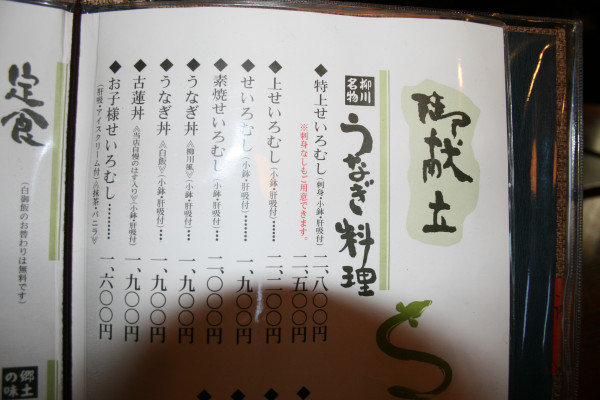 御献立
柳川名物
うなぎ料理
◆特上せいろむし(刺身・小鉢・肝吸付)…二、八〇〇円
※刺身なしもご用意できます。 二、五〇〇円
◆上せいろむし(小鉢・肝吸付)………二、二〇〇円
◆せいろむし(小鉢・肝吸付)………一、九〇〇円
◆素焼せいろむし(小鉢・肝吸付)…二、〇〇〇円
◆うなぎ丼≪柳川風≫(小鉢・肝吸付)…一、九〇〇円
◆うなぎ丼≪白飯≫(小鉢・肝吸付)…一、九〇〇円
◆古蓮丼≪当店自慢のはす入り≫(小鉢・肝吸付)一、九〇〇円
◆お子様せいろむし………一、六〇〇円
(肝吸・アイスクリーム付)≪抹茶・バニラ≫
定食
(白御飯のお替わりは無料です)
郷土の味